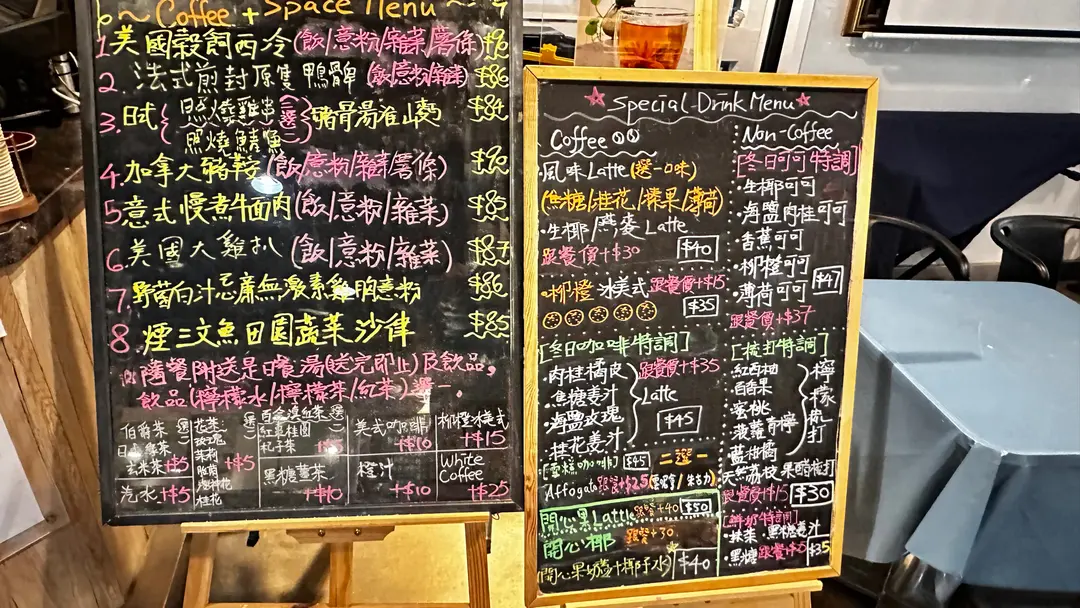 ~ Coffee + Space Menu ~
1. 美國穀飼西冷(飯/意粉/雜菜/薯條)
2. 法式煎封原隻鴨髀(飯/意粉/雜菜) $86
3. 日式{照燒雞串 二選一 }豬骨湯 $84
照燒鯖魚
4. 加拿大豬鞍(飯/意粉/雜菜/薯條) $90
5. 意式慢煮牛面肉(飯/意粉/雜菜) $85
6. 美國大雞扒(飯/意粉/雜菜) $87
7. 野菌白汁忌廉無激素雞肉意粉 $86
8 煙三文魚田園蔬菜沙律 $85
隨餐附送是日餐湯(送完即止)及飲品,
飲品(檸檬水/檸檬茶/紅茶)選一
伯爵茶
玄米茶 +$5
汽水 +$5
花茶
茉莉
桂花
+$5
紅棗桂圓
杞子茶
黑糖薑茶 +$10
美式咖啡 +$10
橙汁 +$10
柳橙冰美式 +$15
White Coffee +$25
Special Drink Menu
Coffee
·風味Latte(選一味)
(焦糖/桂花/榛果/薄荷)
·生椰/燕麥 Latte
跟餐價+$30 $40
·柳橙 冰美式 跟餐價+$15
$35
[冬日咖啡特調]
·肉桂橘皮 跟餐價+$35
·焦糖薑汁
·海鹽玫瑰
·桂花薑汁
Latte
$45
[雪糕咖啡] $45 二選一
Affogato 跟餐+$25
開心果Latte 跟餐+40 $50
開心椰 跟餐+30
(開心果 + 椰子水) $40
Non-Coffee
[冬日可可特調]
·生椰可可
·海鹽肉桂可可
·香蕉可可
·柳橙可可
·薄荷可可 $47
跟餐價+$37
[梳打特調]
紅西柚
百香果
蜜桃
菠蘿青檸
藍柑橘
檸檬梳打
天然荔枝果醋梳打
跟餐價+$15 $30
[鮮奶特調]
·抹茶·黑糖薑汁
·黑糖 跟餐 $35